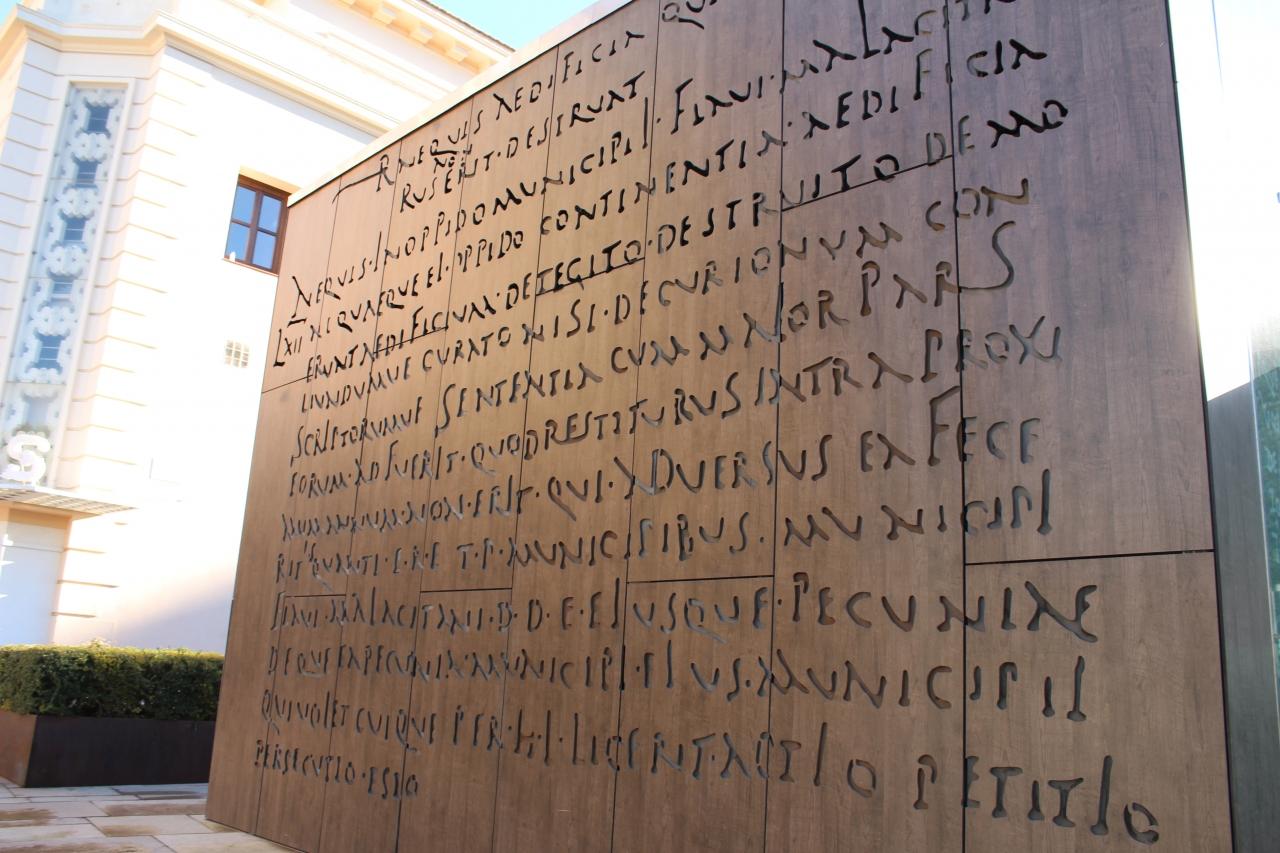 R NEQUIS AEDIFICIA
RUS ERIT · DESTRUAT
NEQUIS · IN OPPIDO MUNICIPII · FLAVI · MALACITA
LXII NI QUAEQUE EI · OPPIDO CONTINENTIA · AEDIFICIA
ERUNT AEDIFICIUM · DETEGITO · DESTRUITO DEMO
LIUNDUMVE CURATO NISI · DECURIONUM CON
SCRIPTORUMVE SENTENTIA CUM MAIOR PARS
EORUM · ADFUERIT · QUOD RESTITURUS INTRA PROXI
MUM ANNUM · NON · ERIT · QUI · ADVERSUS EA FECE
RIT · QUANTI · E · R · E T · P · MUNICIPIBUS · MUNICIPI
FLAVI MALACITANI · D · D · E · EIUSQUE · PECUNIAE
DEQUE EA PECUNIA · MUNICIPI · EIUS · MUNICIPII
QUI VOLET CUIQUE PER · H · L · LICEBIT · ACTIO PETITIO
PERSECUTIO · ESTO
S